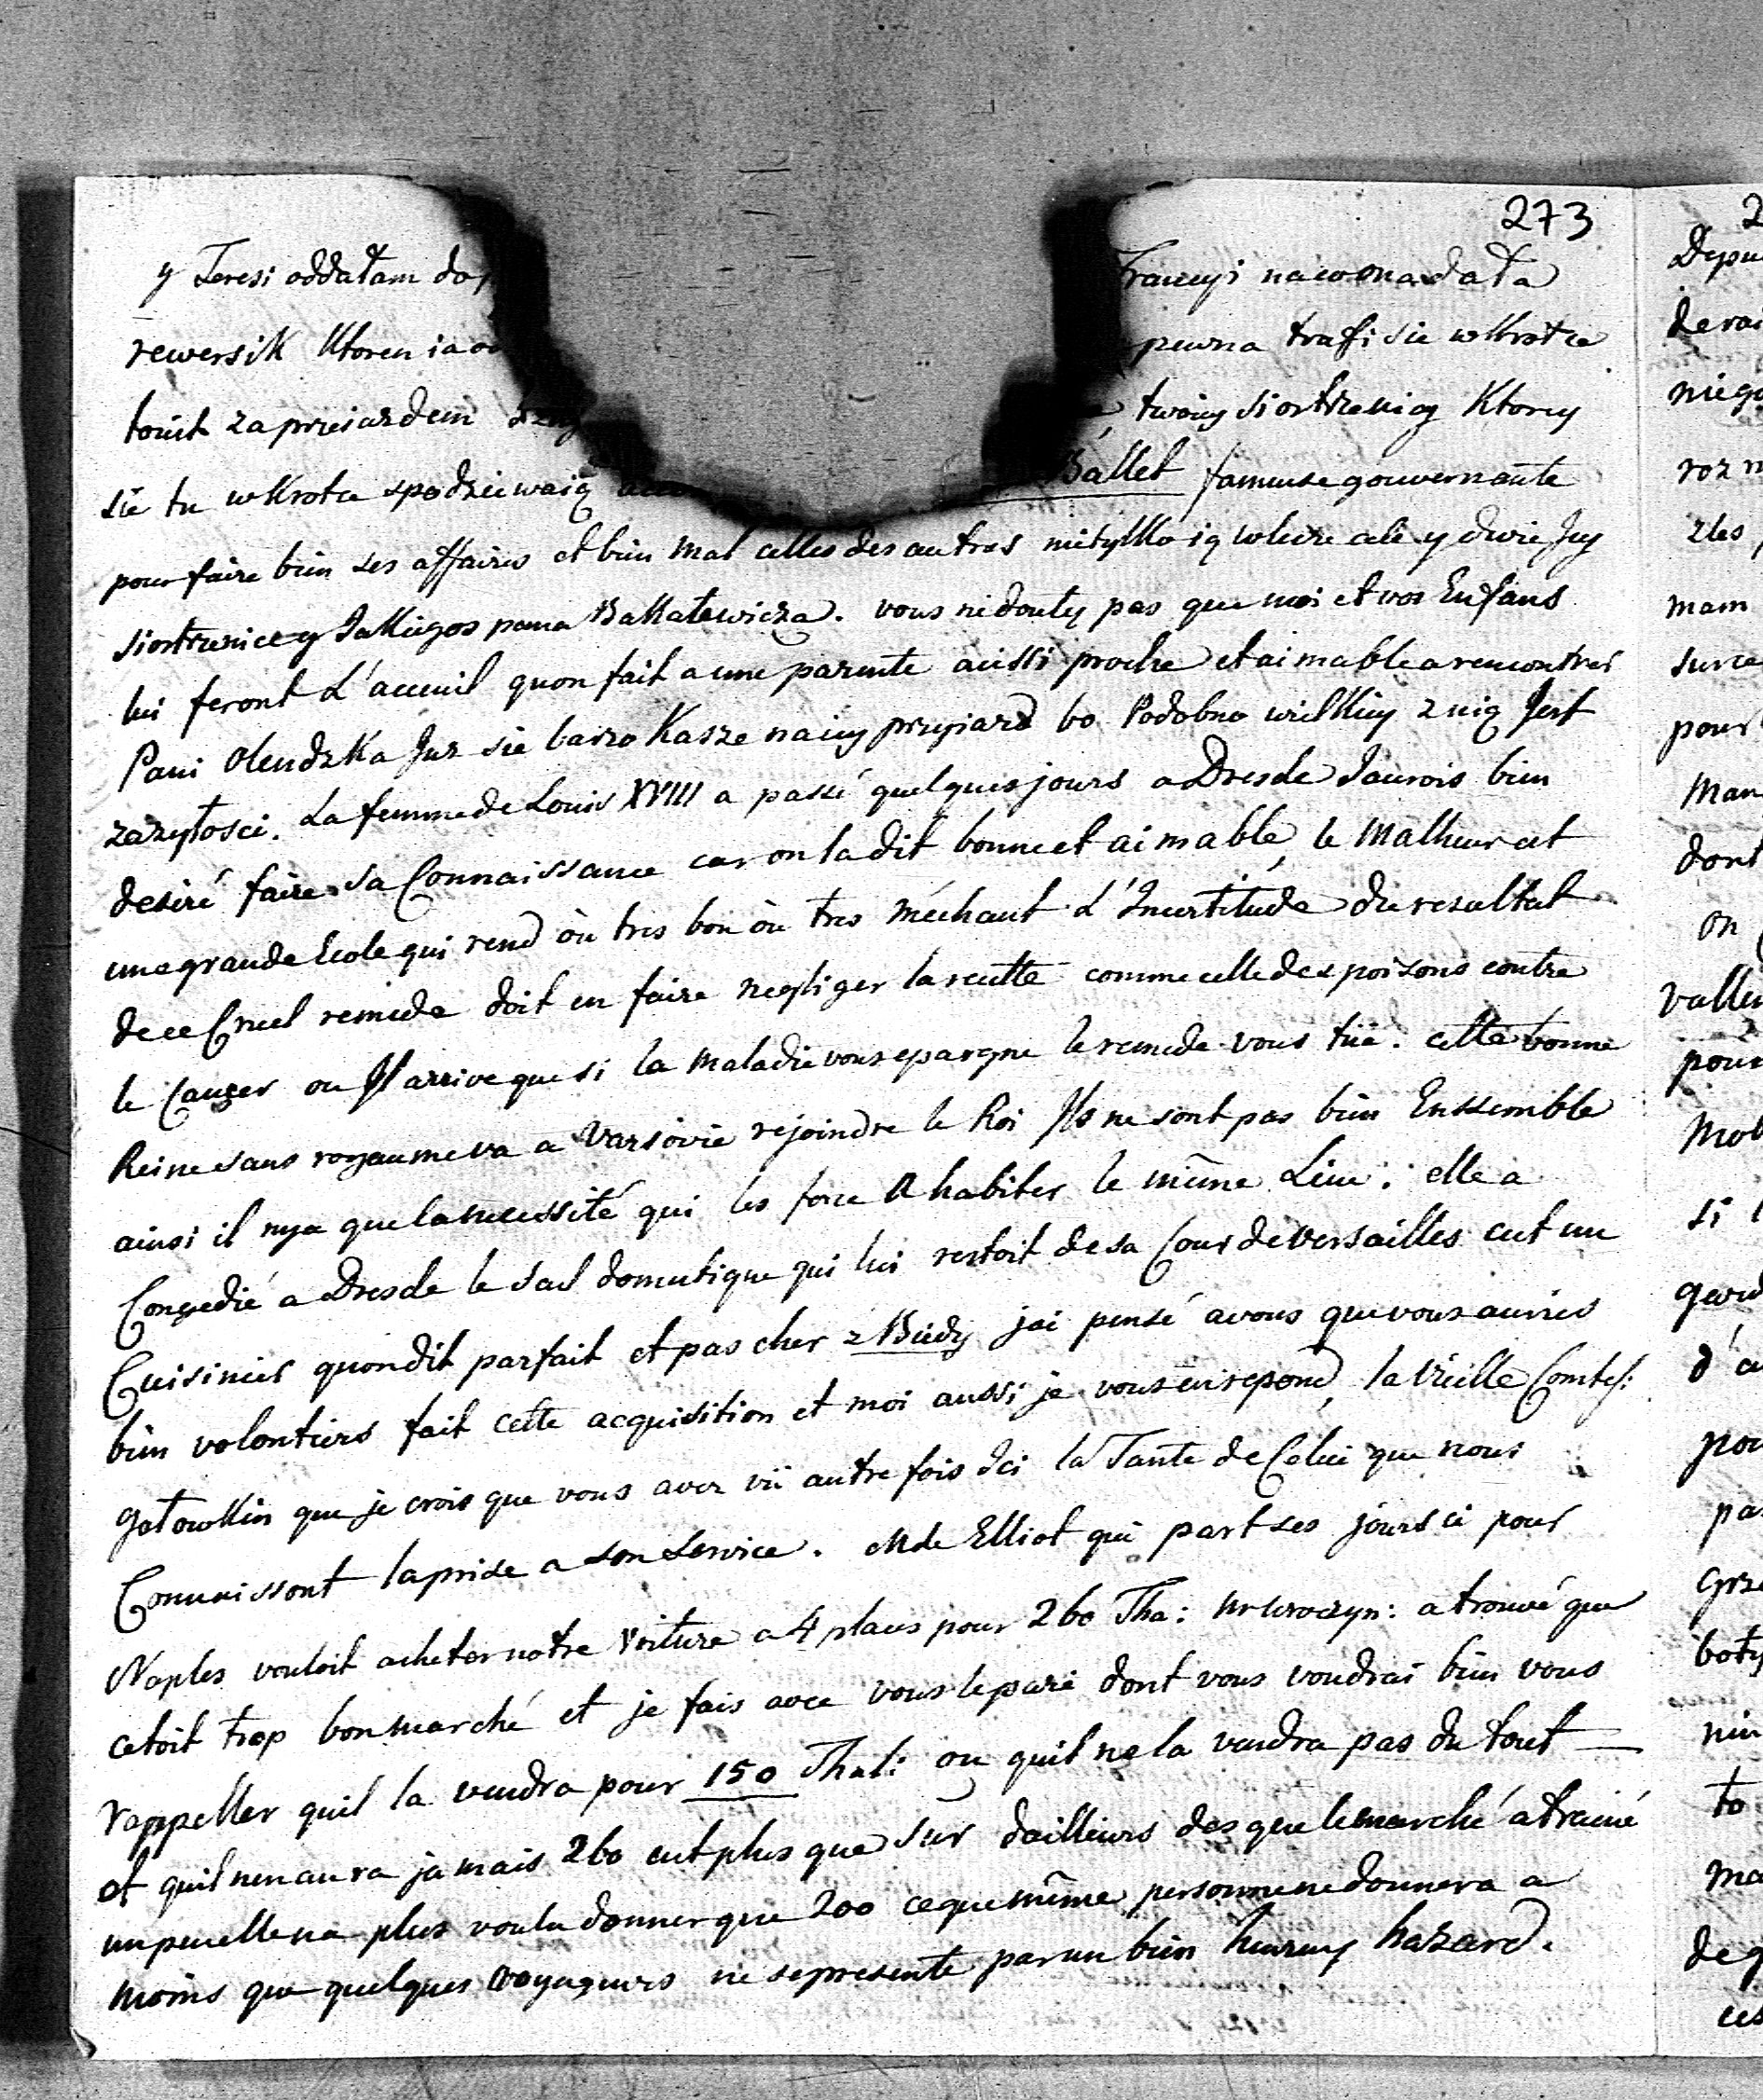 273
y Teresi oddałam do Francyi na co ona dała
rewersik Ktoren ia pewna trafi sie wkrotce
touit za przeiazdem twoiey siostrzenicy Ktorey
sie tu wkrotce spodziewaią Ballet fameuse gouvernante
pour faire bien ses affaires et bien mal celles des autres nietylko ią wlecze ale y dwie Jey
siostrzenice y Jakiegos pana Bakałowicza. vous ne doutez pas que moi et vos Enfans
lui feront L'acceuil quon fait a une parente aussi proche et aimable a rencontrer
Pani Olendzka Juz sie barzo Kasze na iey przyiazd bo Podobno wielkiey z nią Jest
zazyłosci. La femme de Louis XVIII a passé quelques jours a Dresde Jaurois bien
desiré faire sa Connaissance car on la dit bonne et aimable, le Malheur est
une grande Ecole qui rend où tres bon où tres méchant L'Incertitude du resultat
de ce Cruel remede doit en faire negliger la recette comme celle des poisons contre
le Cancer ou Il arrive que si la maladie vous epargne le remede vous tüe. cette bonne
Reine sans royaume va a Varsovie rejoindre le Roi Ils ne sont pas bien Enssemble
ainsi il nya que la necessité qui les force A habiter le même Lieu: elle a
Congedié a Dresde le seul domestique qui lui restoit de sa Cour de Versailles cest un
Cuisinier quon dit parfait et pas cher z Biedy jai pensé a vous que vous auries
bien volontiers fait cette acquisition et moi aussi je vous en repond, la Vieille Comtes:
Gołowkin que je crois que vous avez vü autre fois Ici la Tante de Celui que nous
Connaissont la prise a son Service. Mde Elliot qui part ses jours ci pour
Naples vouloit acheter notre Voiture a 4 places pour 260 Tha: a trouvé que
cetoit trop bon marché et je fais avec vous le pari dont vous voudrai bien vous
rappeller quil la vendra pour 150 Thal: ou quil ne la vendra pas du tout
et quil nen aura jamais 260 cest plus que sur dailleurs des que le marché a trainé
un peu elle na plus voulu donner que 200 ce que même personne ne donnera a
moins que quelques voyageurs ne se presente par un bien heureux hazard.